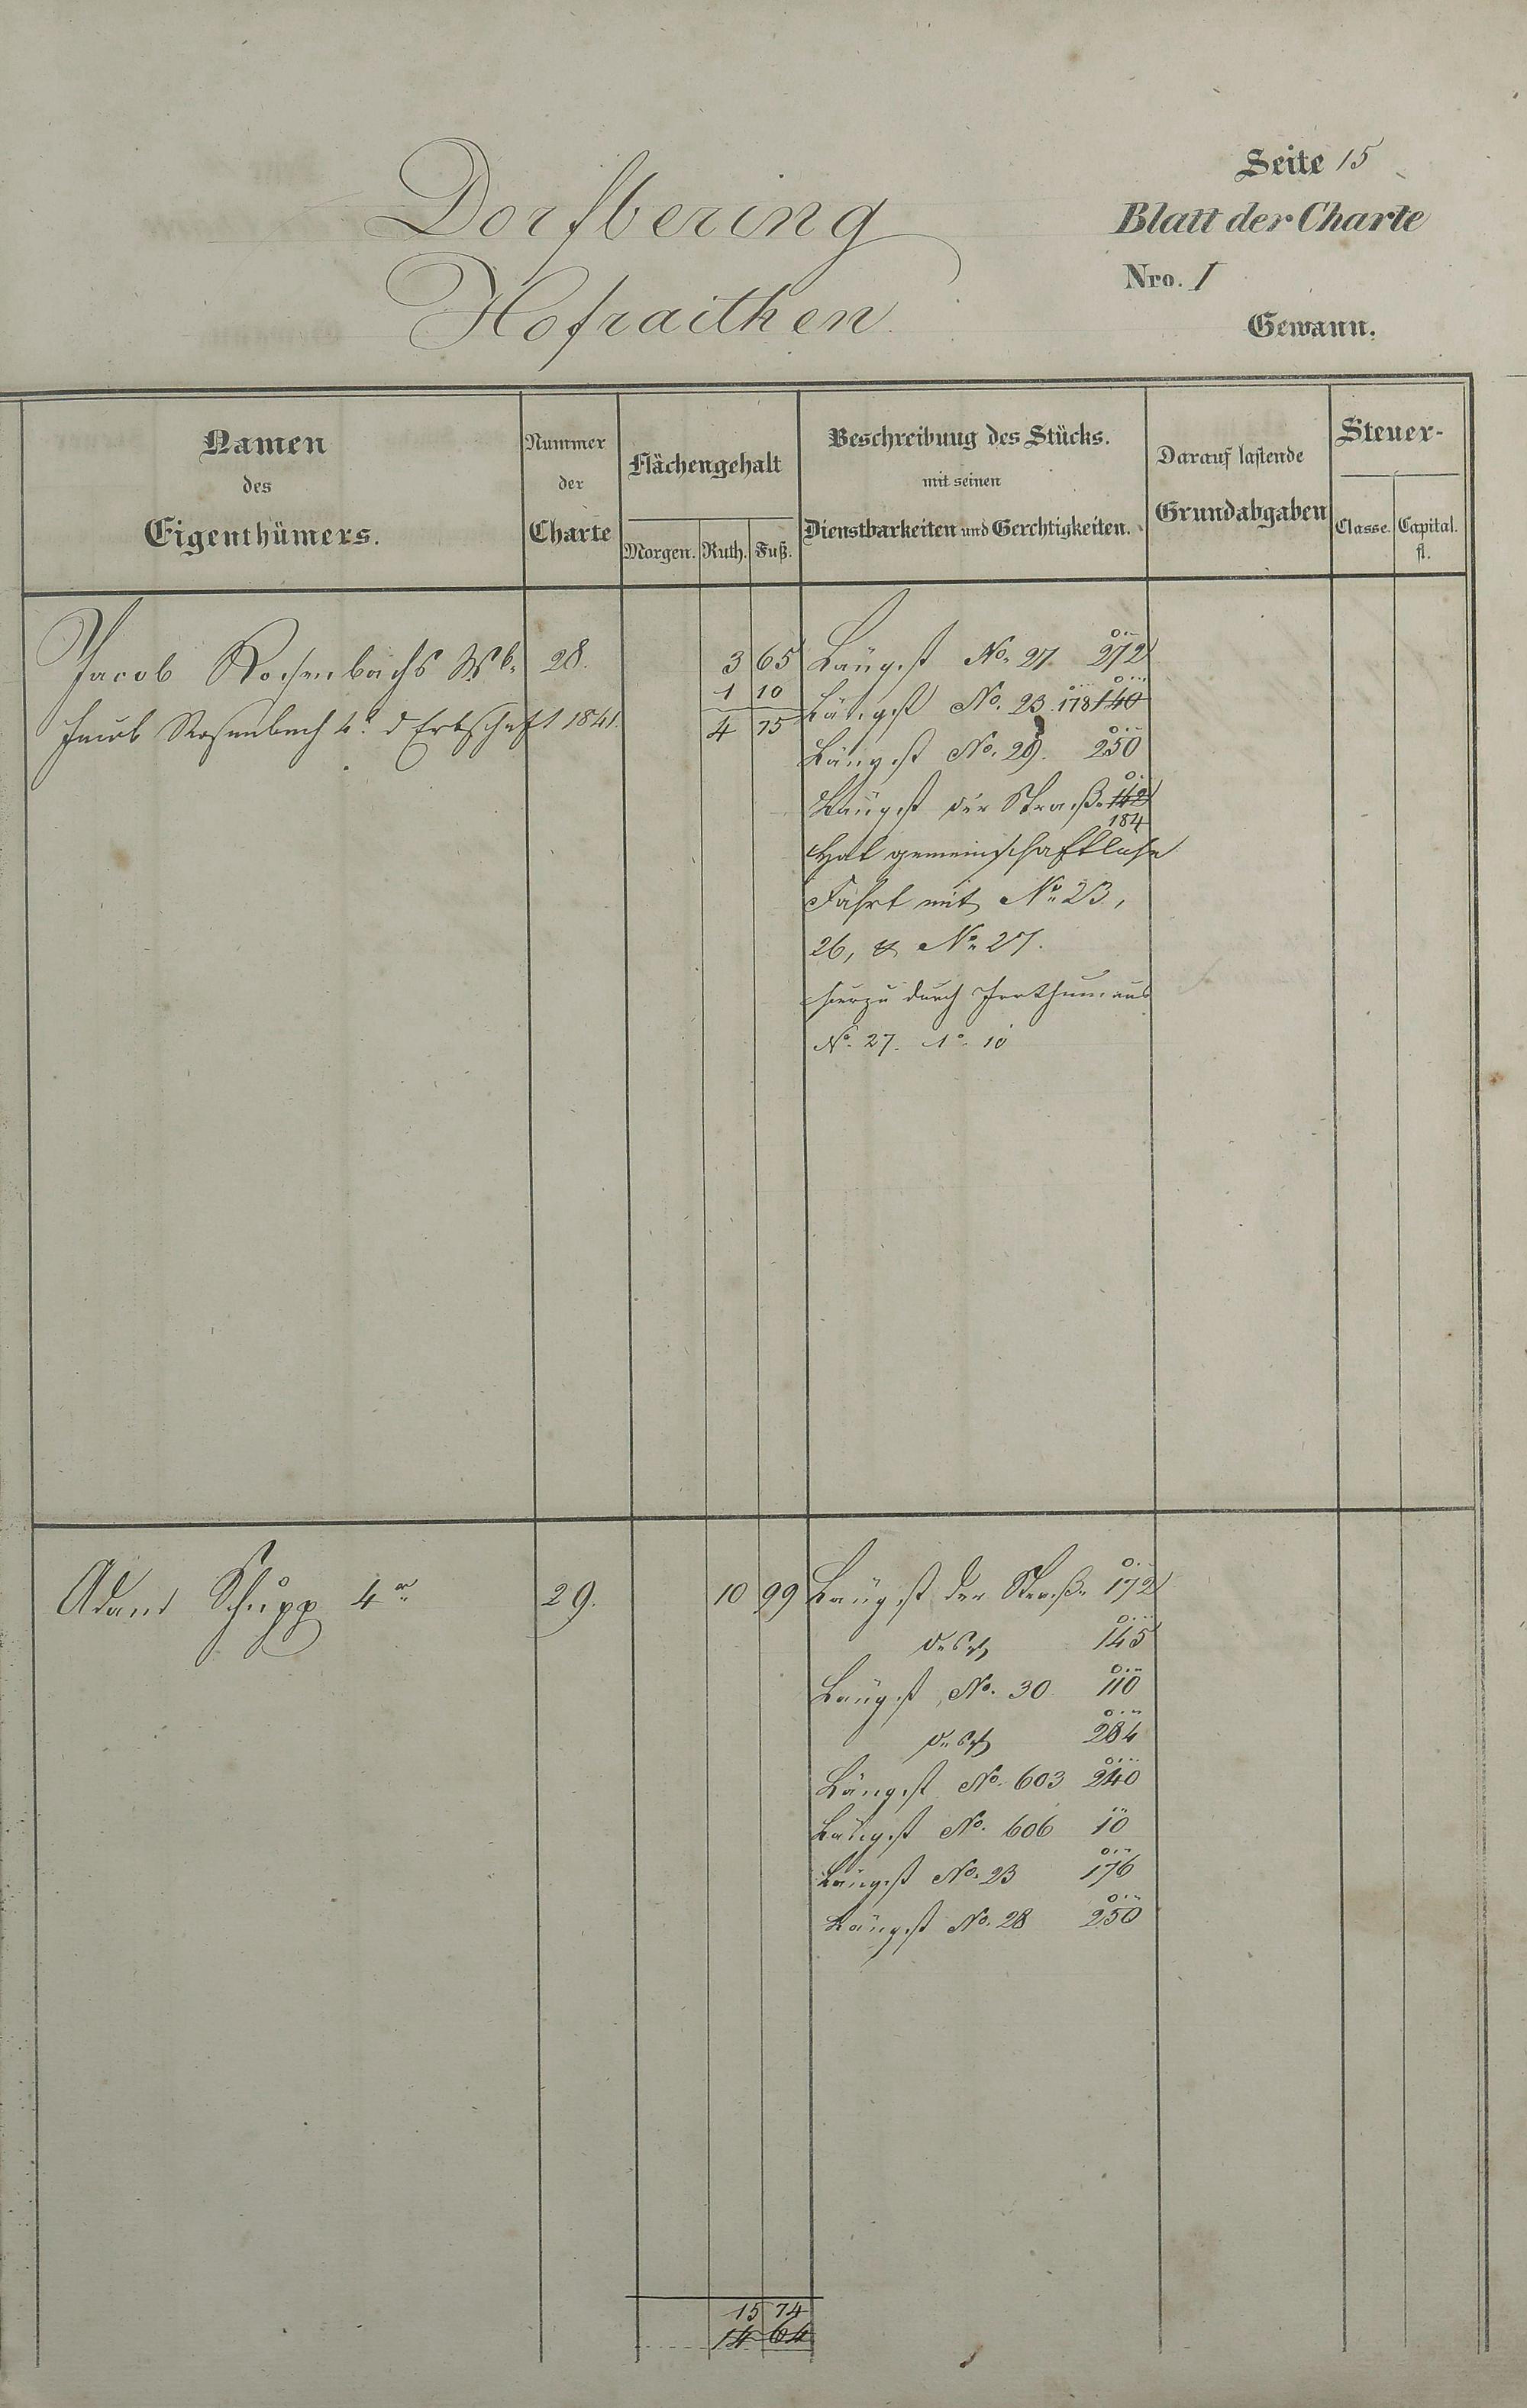 Seite 15
Dorfbering
Blatt der Charte
Nro. I
Hofraithen
Gewann.
Namen des Eigenthümers.
Nummer der Charte
Flächengehalt
Morgen. Ruth. Fuß.
Beschreibung des Stücks.
mit seinen
Dienstbarkeiten und Gerechtigkeiten.
Darauf lastende
Grundabgaben
Steuer-
Classe. Capital.
fl.
Jacob Rosenbachs Wb. 28. 3 65 Längst No. 27 272
1 10
Jacob Rosenbach 4r d Erbschaft 1841. 4 75 Längst No. 23 178 140
Längst No. 29. 250
Längst der Straße 142
184
Hat gemeinschaftliche
Fahrt mit No 23,
26, & No 27.
hierzu durch Irrthum aus
No. 27. 1° 10
Adam Schupp 4r 29. 10 99 Längst der Straße 172
desgl 145
Längst No. 30 110
desgl 284
Längst No. 603 240
Längst No. 606 10
Längst No. 23 176
Längst No. 28 250
15 74
14 64